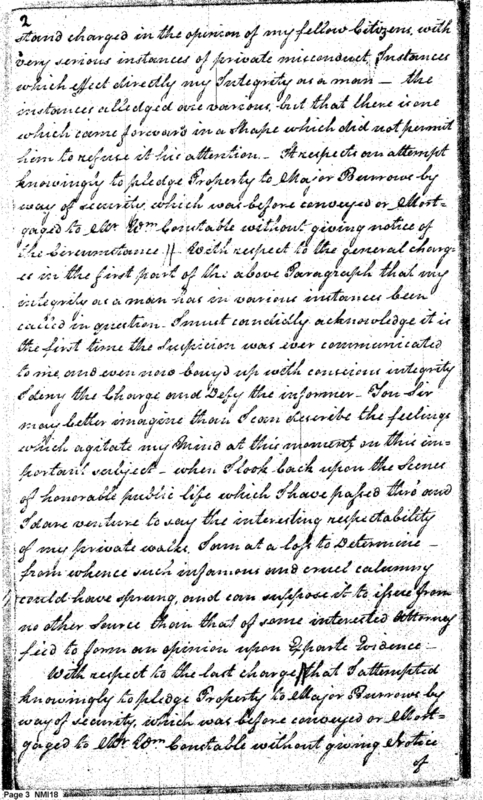 2
stand charged in the opinion of my fellow Citizens, with
very serious instances of private misconduct, Instances
which effect directly my Integrity as a man — the
instances alledged are various, but that there is one
which came forward in a Shape which did not permit
him to refuse it his attention — It respects an attempt
knowingly to pledge Property to Major Burrows by
way of security, which was before conveyed or Mort-
gaged to Mr. Wm. Constable without giving notice of
the Circumstance // With respect to the general charg-
es in the first part of the above Paragraph that my
integrity as a man has in various instances been
called in question — I must candidly acknowledge it is
the first time the Suspicion was ever communicated
to me, and even now bouy'd up with conscious integrity
I deny the Charge and Defy the informer — You Sir
may better imagine than I can describe the feelings
which agitate my Mind at this moment, on this im-
portant subject — when I look back upon the Scenes
of honorable public life which I have passed thro' and
I dare venture to say the interesting respectability
of my private walks, I am at a loss to Determine —
from whence such infamous and cruel calumny
could have sprung, and can suppose it to issue from
no other Source than that of some interested Attorney
feed to form an opinion upon Exparte Evidence —
With respect to the last charge, that I attempted
knowingly to pledge Property to Major Burrows by
way of security, which was before conveyed or Mort-
gaged to Mr. Wm. Constable without giving Notice
of
Page 3 NMI18